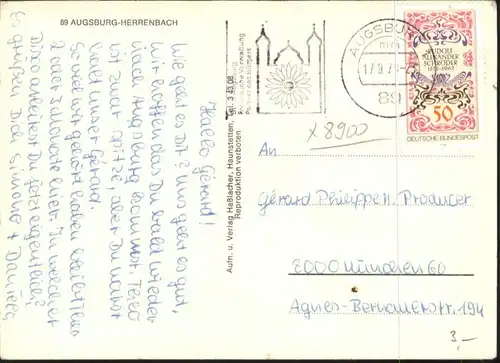 89 AUGSBURG-HERRENBACH
Hallo Gérard!
Wie geht es Dir? Uns geht es gut,
wir hoffen das Du bald wieder
nach Augsburg kommst. Teleo
ist zwar spitze, aber Du warst
halt unser Gérard.
Soviel wir gehört haben bleibt Teleo
2 oder 3 Monate hier. In welcher
Disco arbeitest Du jetzt eigentlich?
Es grüßen Dich Simone + Daniela
Aufn. u. Verlag Haßlacher, Haunstetten, Tel. 3 43 08
Reproduktion verboten
AUGSBURG
89
RUDOLF
ALEXANDER
SCHRÖDER
1878-1962
50
DEUTSCHE BUNDESPOST
x 8900
An
Gérard Philippen Producer
8000 München 60
Agnes-Bernauerstr. 194
3,-